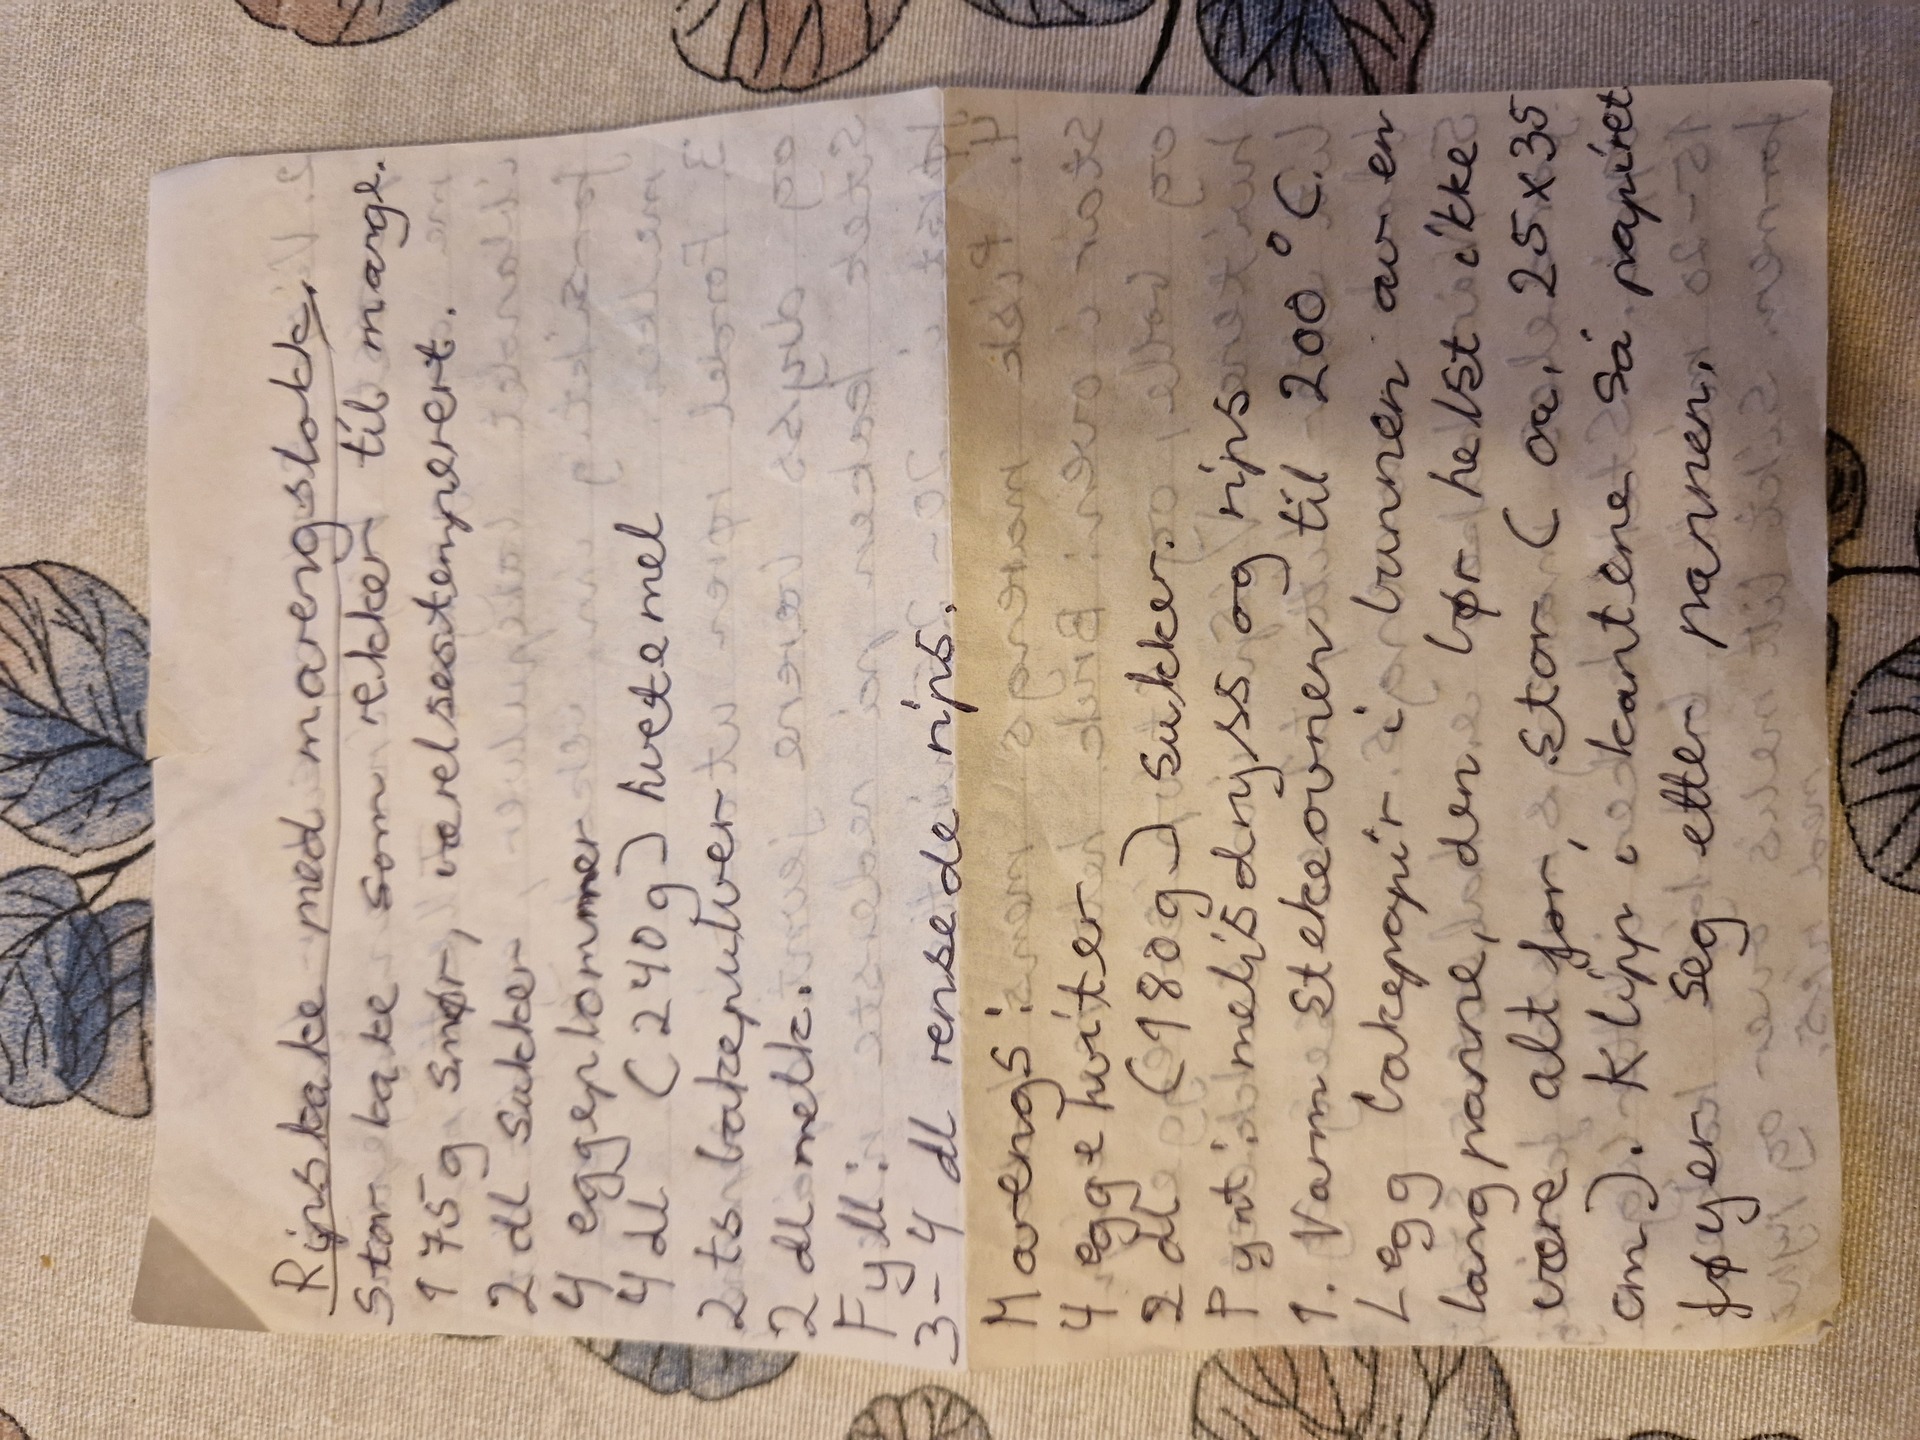 Ripskake med marengslokk.
Stor kake som rekker til mange.
175g smør, værelsestemperert.
2 dl sukker
4 eggeplommer
4 dl (240g) hvetemel
2 ts bakepulver
2 dl melk.
Fyll:
3-4 dl rensede rips.
Marengs:
4 eggehviter
2 dl (180g) sukker.
Pynt: melisdryss og rips
1. Varm stekeovnen til 200 °C.
Legg bakepapir i bunnen av en
langpanne, den bør helst ikke
være alt for, stor (ca. 25x35
cm). Klipp i kantene så papiret
føyer seg etter pannen.